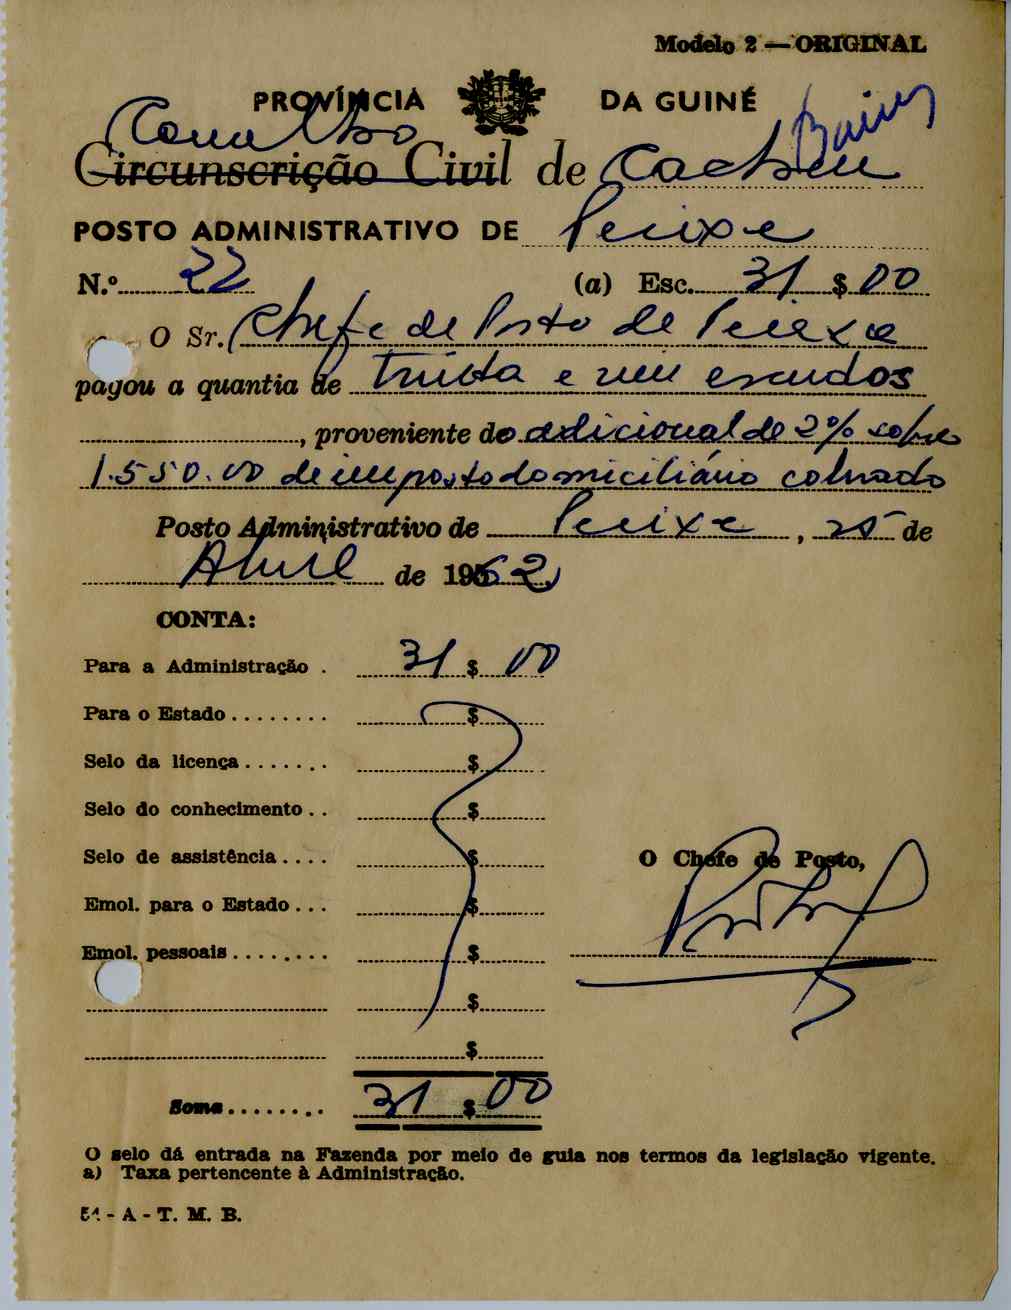 Modelo 2 — ORIGINAL
PROVÍNCIA DA GUINÉ
Concelho
Circunscrição Civil de Cacheu
POSTO ADMINISTRATIVO DE Pecixe
N.º 22 (a) Esc. 31 $ 00
O Sr. Chefe de Posto de Pecixe
pagou a quantia de Trinta e um escudos
, proveniente do adicional de 2% sobre
1.550.00 de imposto domiciliário cobrado
Posto Administrativo de Pecixe, 25 de
Abril de 1962
CONTA:
Para a Administração . 31 $ 00
Para o Estado ........ $
Selo da licença ....... $
Selo do conhecimento .. $
Selo de assistência .... $
O Chefe de Posto,
Emol. para o Estado ... $
Emol. pessoais ........ $
$
$
Soma ........ 31 $ 00
O selo dá entrada na Fazenda por meio de guia nos termos da legislação vigente.
a) Taxa pertencente à Administração.
- A - T. M. B.